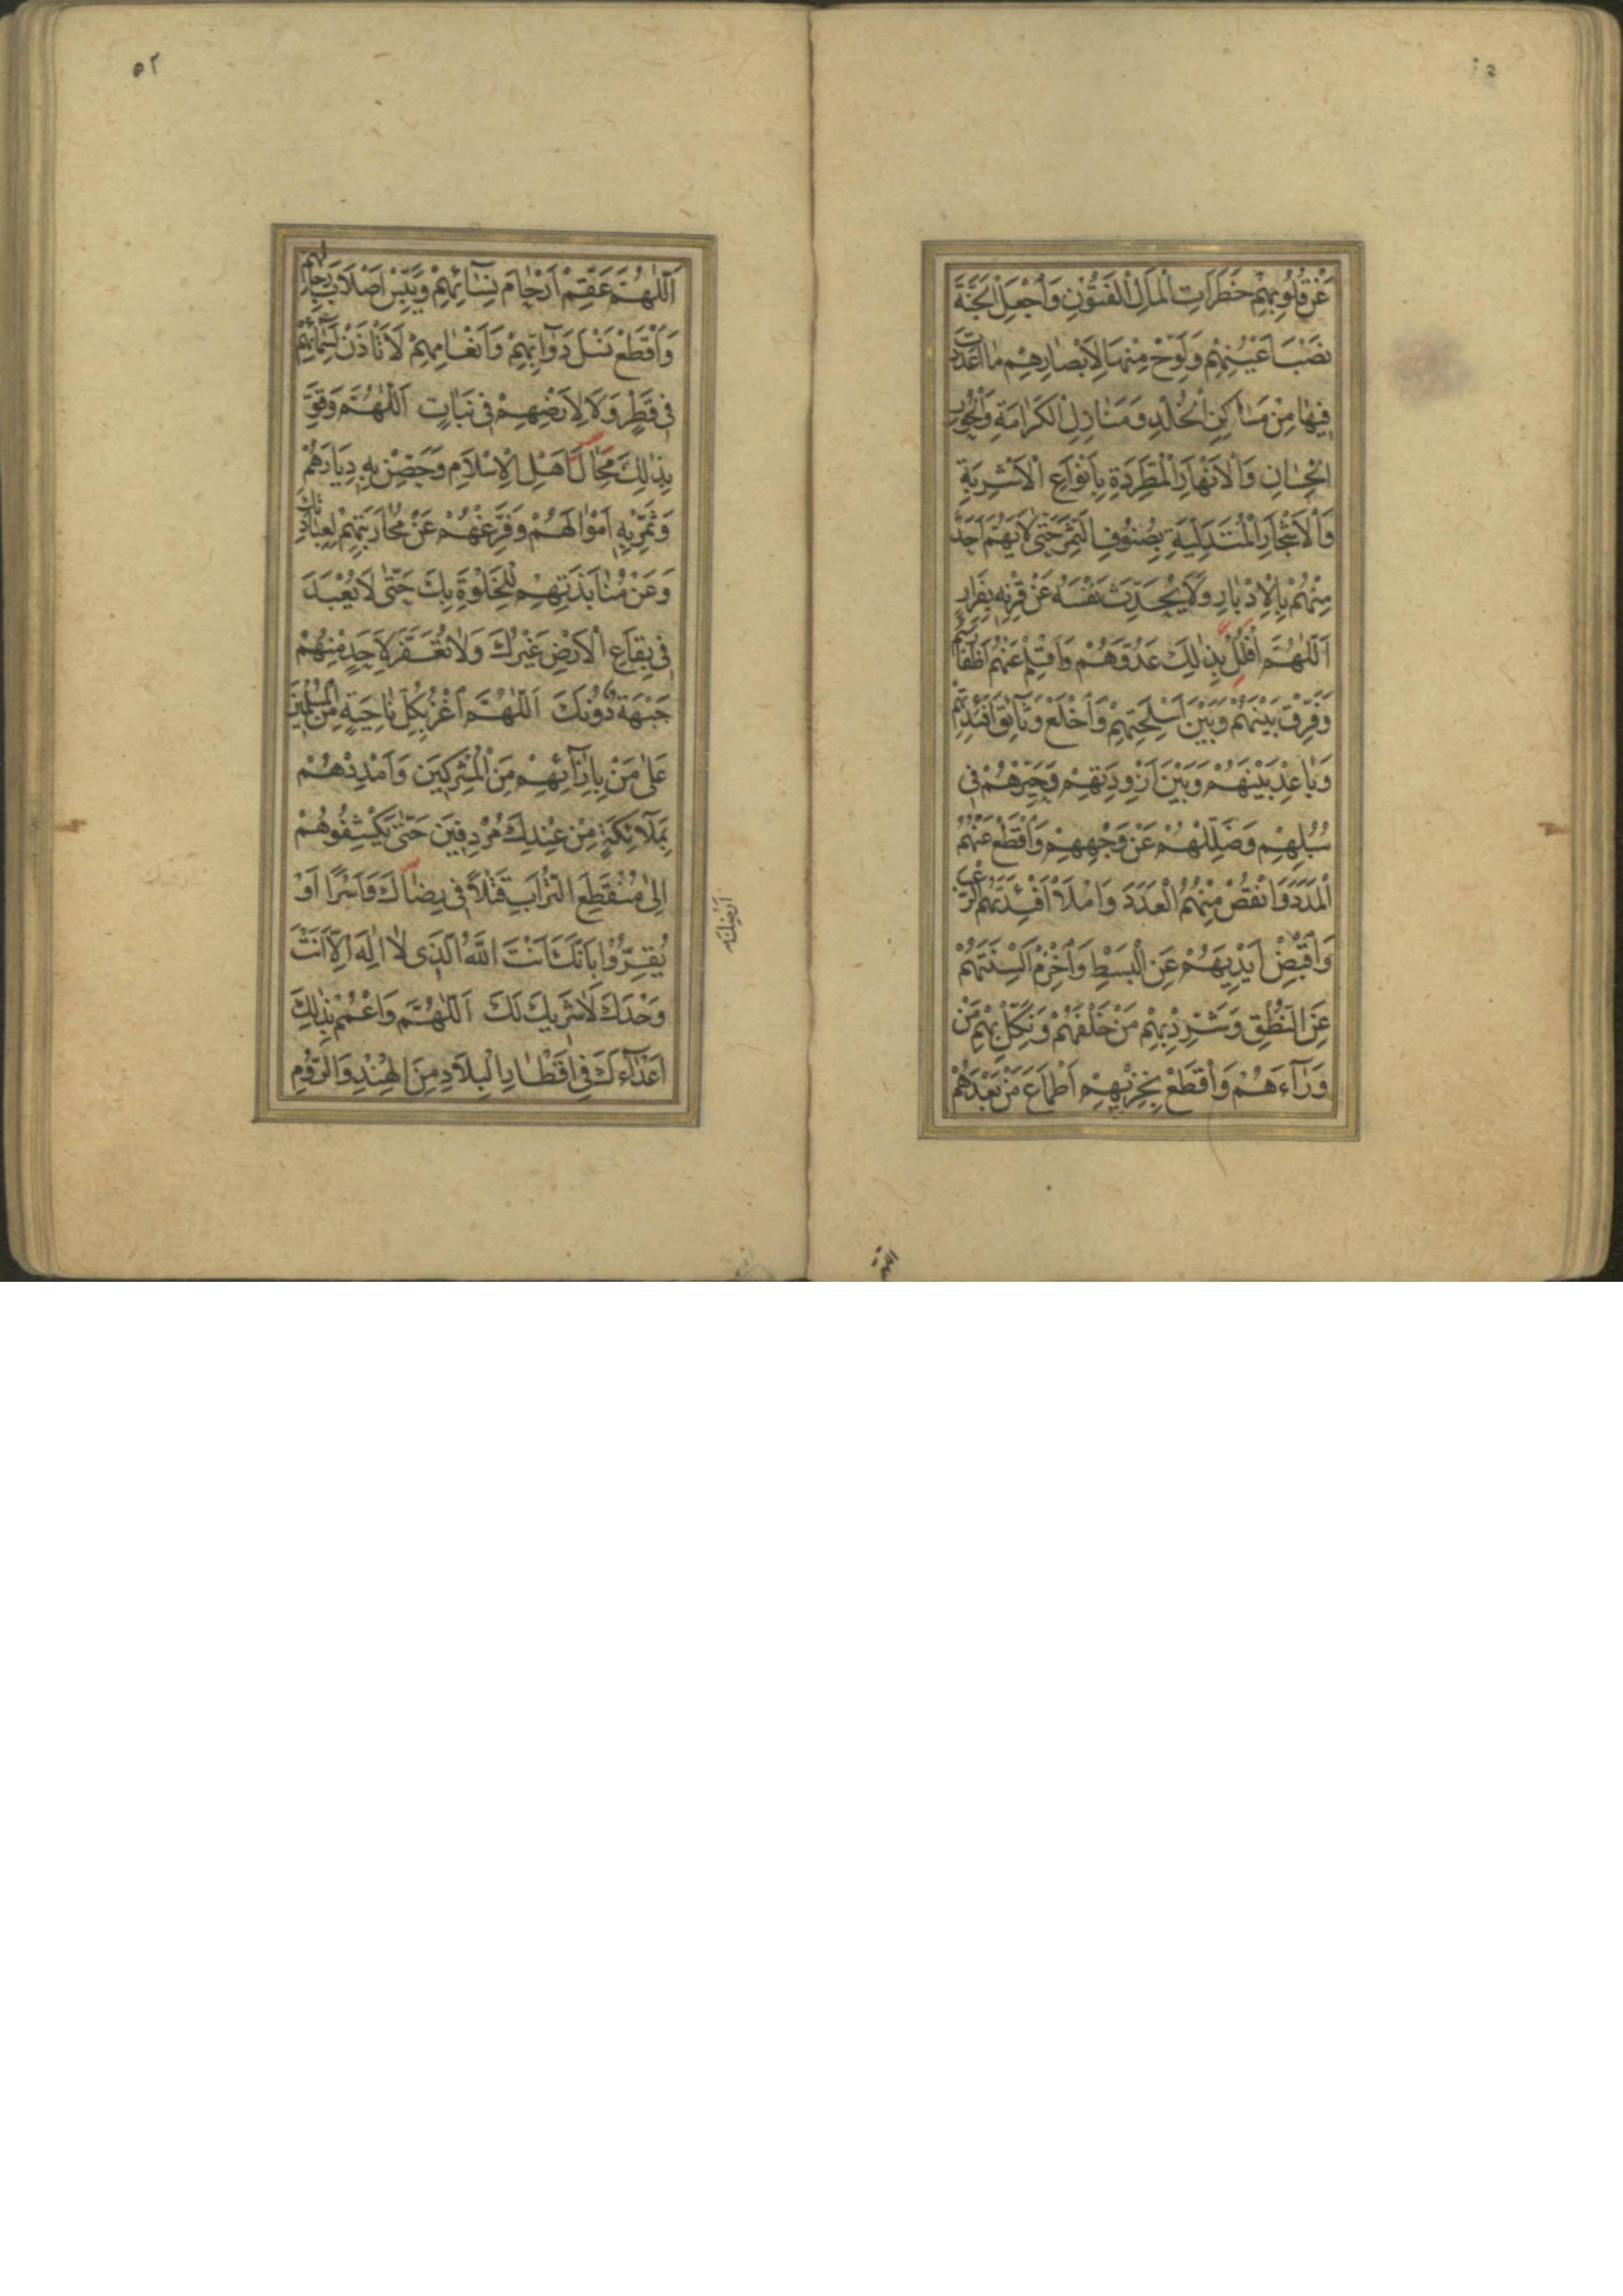 عَنْ قُلُوبِهِمْ خَطَرَاتِ الْمَالِ الْفَتُونِ وَاجْعَلِ الْجَنَّةَ
نَصْبَ اَعْيُنِهِمْ وَلَوِّحْ مِنْهَا لِاَبْصَارِهِمْ مَا اَعْدَدْتَ
فِيهَا مِنْ مَسَاكِنِ الْخُلْدِ وَمَنَازِلِ الْكَرَامَةِ وَالْحُورِ
الْحِسَانِ وَالْاَنْهَارِ الْمُطَّرِدَةِ بِاَنْوَاعِ الْاَشْرِبَةِ
وَالْاَشْجَارِ الْمُتَدَلِّيَةِ بِصُنُوفِ الثَّمَرِ حَتّٰى لَا يَهُمَّ اَحَدٌ
مِنْهُمْ بِالْاِدْبَارِ وَلَا يُحَدِّثَ نَفْسَهُ عَنْ قِرْنِهِ بِفِرَارٍ
اَللّٰهُمَّ افْلُلْ بِذٰلِكَ عَدُوَّهُمْ وَاقْلِمْ عَنْهُمْ اَظْفَارَهُمْ
وَفَرِّقْ بَيْنَهُمْ وَبَيْنَ اَسْلِحَتِهِمْ وَاخْلَعْ وَثَائِقَ اَفْئِدَتِهِمْ
وَبَاعِدْ بَيْنَهُمْ وَبَيْنَ اَزْوِدَتِهِمْ وَحَيِّرْهُمْ فِي
سُبُلِهِمْ وَضَلِّلْهُمْ عَنْ وَجْهِهِمْ وَاقْطَعْ عَنْهُمُ
الْمَدَدَ وَانْقُصْ مِنْهُمُ الْعَدَدَ وَامْلَأْ اَفْئِدَتَهُمُ الرُّعْبَ
وَاقْبِضْ اَيْدِيَهُمْ عَنِ الْبَسْطِ وَاخْزِمْ اَلْسِنَتَهُمْ
عَنِ النُّطْقِ وَشَرِّدْ بِهِمْ مَنْ خَلْفَهُمْ وَنَكِّلْ بِهِمْ مَنْ
وَرَآءَهُمْ وَاقْطَعْ بِخِزْيِهِمْ اَطْمَاعَ مَنْ بَعْدَهُمْ
اللّهمّ
٥٢
اَللّٰهُمَّ عَقِّمْ اَرْحَامَ نِسَآئِهِمْ وَيَبِّسْ اَصْلَابَ رِجَالِهِمْ
وَاقْطَعْ نَسْلَ دَوَآبِّهِمْ وَاَنْعَامِهِمْ لَا تَأْذَنْ لِسَمَآئِهِمْ
فِي قَطْرٍ وَلَا لِاَرْضِهِمْ فِي نَبَاتٍ اَللّٰهُمَّ وَقَوِّ
بِذٰلِكَ مِحَالَ اَهْلِ الْاِسْلَامِ وَحَصِّنْ بِهِ دِيَارَهُمْ
وَثَمِّرْ بِهِ اَمْوَالَهُمْ وَفَرِّغْهُمْ عَنْ مُحَارَبَتِهِمْ لِعِبَادَتِكَ
وَعَنْ مُنَابَذَتِهِمْ لِلْخَلْوَةِ بِكَ حَتّٰى لَا يُعْبَدَ
فِي بِقَاعِ الْاَرْضِ غَيْرُكَ وَلَا تُعَفَّرَ لِاَحَدٍ مِنْهُمْ
جَبْهَةٌ دُونَكَ اَللّٰهُمَّ اغْزُ بِكُلِّ نَاحِيَةٍ مِنَ الْمُسْلِمِينَ
عَلٰى مَنْ بِاِزَآئِهِمْ مِنَ الْمُشْرِكِينَ وَاَمْدِدْهُمْ
بِمَلَآئِكَةٍ مِنْ عِنْدِكَ مُرْدِفِينَ حَتّٰى يَكْشِفُوهُمْ
اِلٰى مُنْقَطَعِ التُّرَابِ قَتْلًا فِي رِضَاكَ وَاَسْرًا اَوْ
اَرْضِكَ
يُقِرُّوا بِاَنَّكَ اَنْتَ اللّٰهُ الَّذِي لَا اِلٰهَ اِلَّا اَنْتَ
وَحْدَكَ لَا شَرِيكَ لَكَ اَللّٰهُمَّ وَاعْمُمْ بِذٰلِكَ
اَعْدَآءَكَ فِي اَقْطَارِ الْبِلَادِ مِنَ الْهِنْدِ وَالرُّومِ